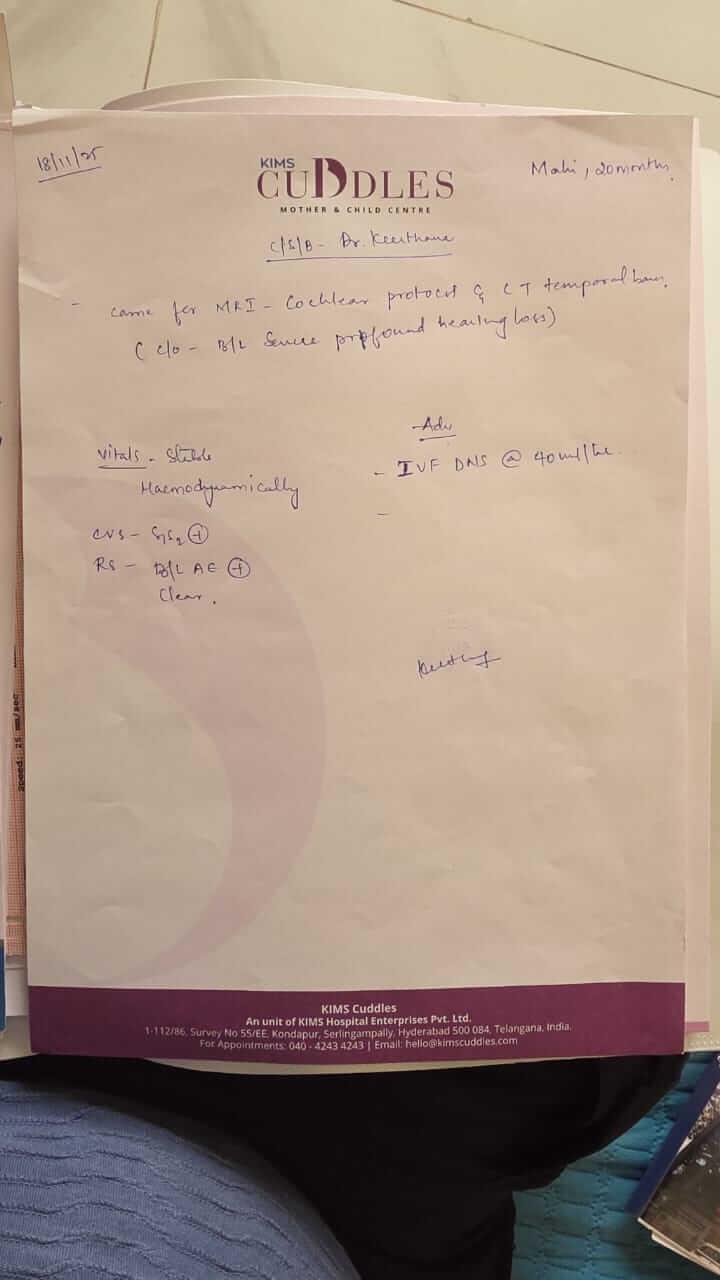 18/11/25
KIMS
CUDDLES
MOTHER & CHILD CENTRE
Mahi, 20 months.
C/S/B - Dr. Keerthana
- came for MRI - Cochlear protocol & CT temporal bone.
( c/o - B/L Severe profound hearing loss)
Vitals - Stable
Haemodynamically
CVS - S1S2 (+)
RS - B/L AE (+)
Clear.
Adv
- IVF DNS @ 40ml/hr.
-
Speed: 25 mm/sec
KIMS Cuddles
An unit of KIMS Hospital Enterprises Pvt. Ltd.
1-112/86, Survey No 55/EE, Kondapur, Serlingampally, Hyderabad 500 084, Telangana, India.
For Appointments: 040 - 4243 4243 | Email: hello@kimscuddles.com